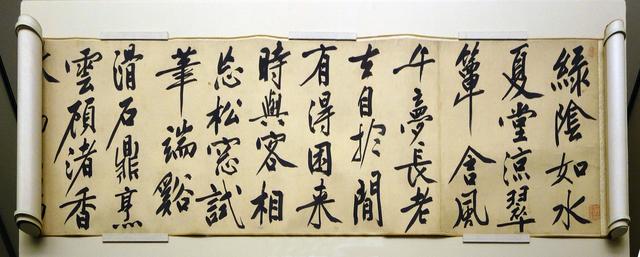 綠陰如水
夏堂涼翠
簟含風
午夢長老
去自於閒
有得困来
時與客相
忘松窓試
筆端谿
滑石鼎烹
雲顧渚香